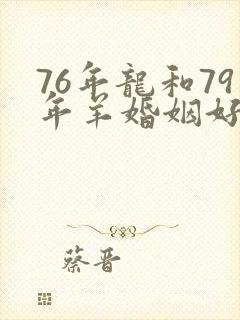 76年龍和79
年羊婚姻好
蔡晋